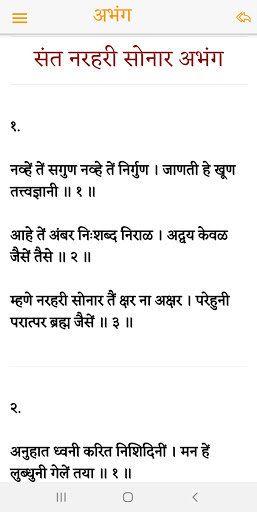 अभंग
संत नरहरी सोनार अभंग
१.
नव्हें तें सगुण नव्हे तें निर्गुण । जाणती हे खूण
तत्त्वज्ञानी ॥ १ ॥
आहे तें अंबर निःशब्द निराळ । अद्वय केवळ
जैसें तैसे ॥ २ ॥
म्हणे नरहरी सोनार तैं क्षर ना अक्षर । परेहुनी
परात्पर ब्रह्म जैसें ॥ ३ ॥
२.
अनुहात ध्वनी करित निशिदिनीं । मन हें
लुब्धुनी गेलें तया ॥ १ ॥